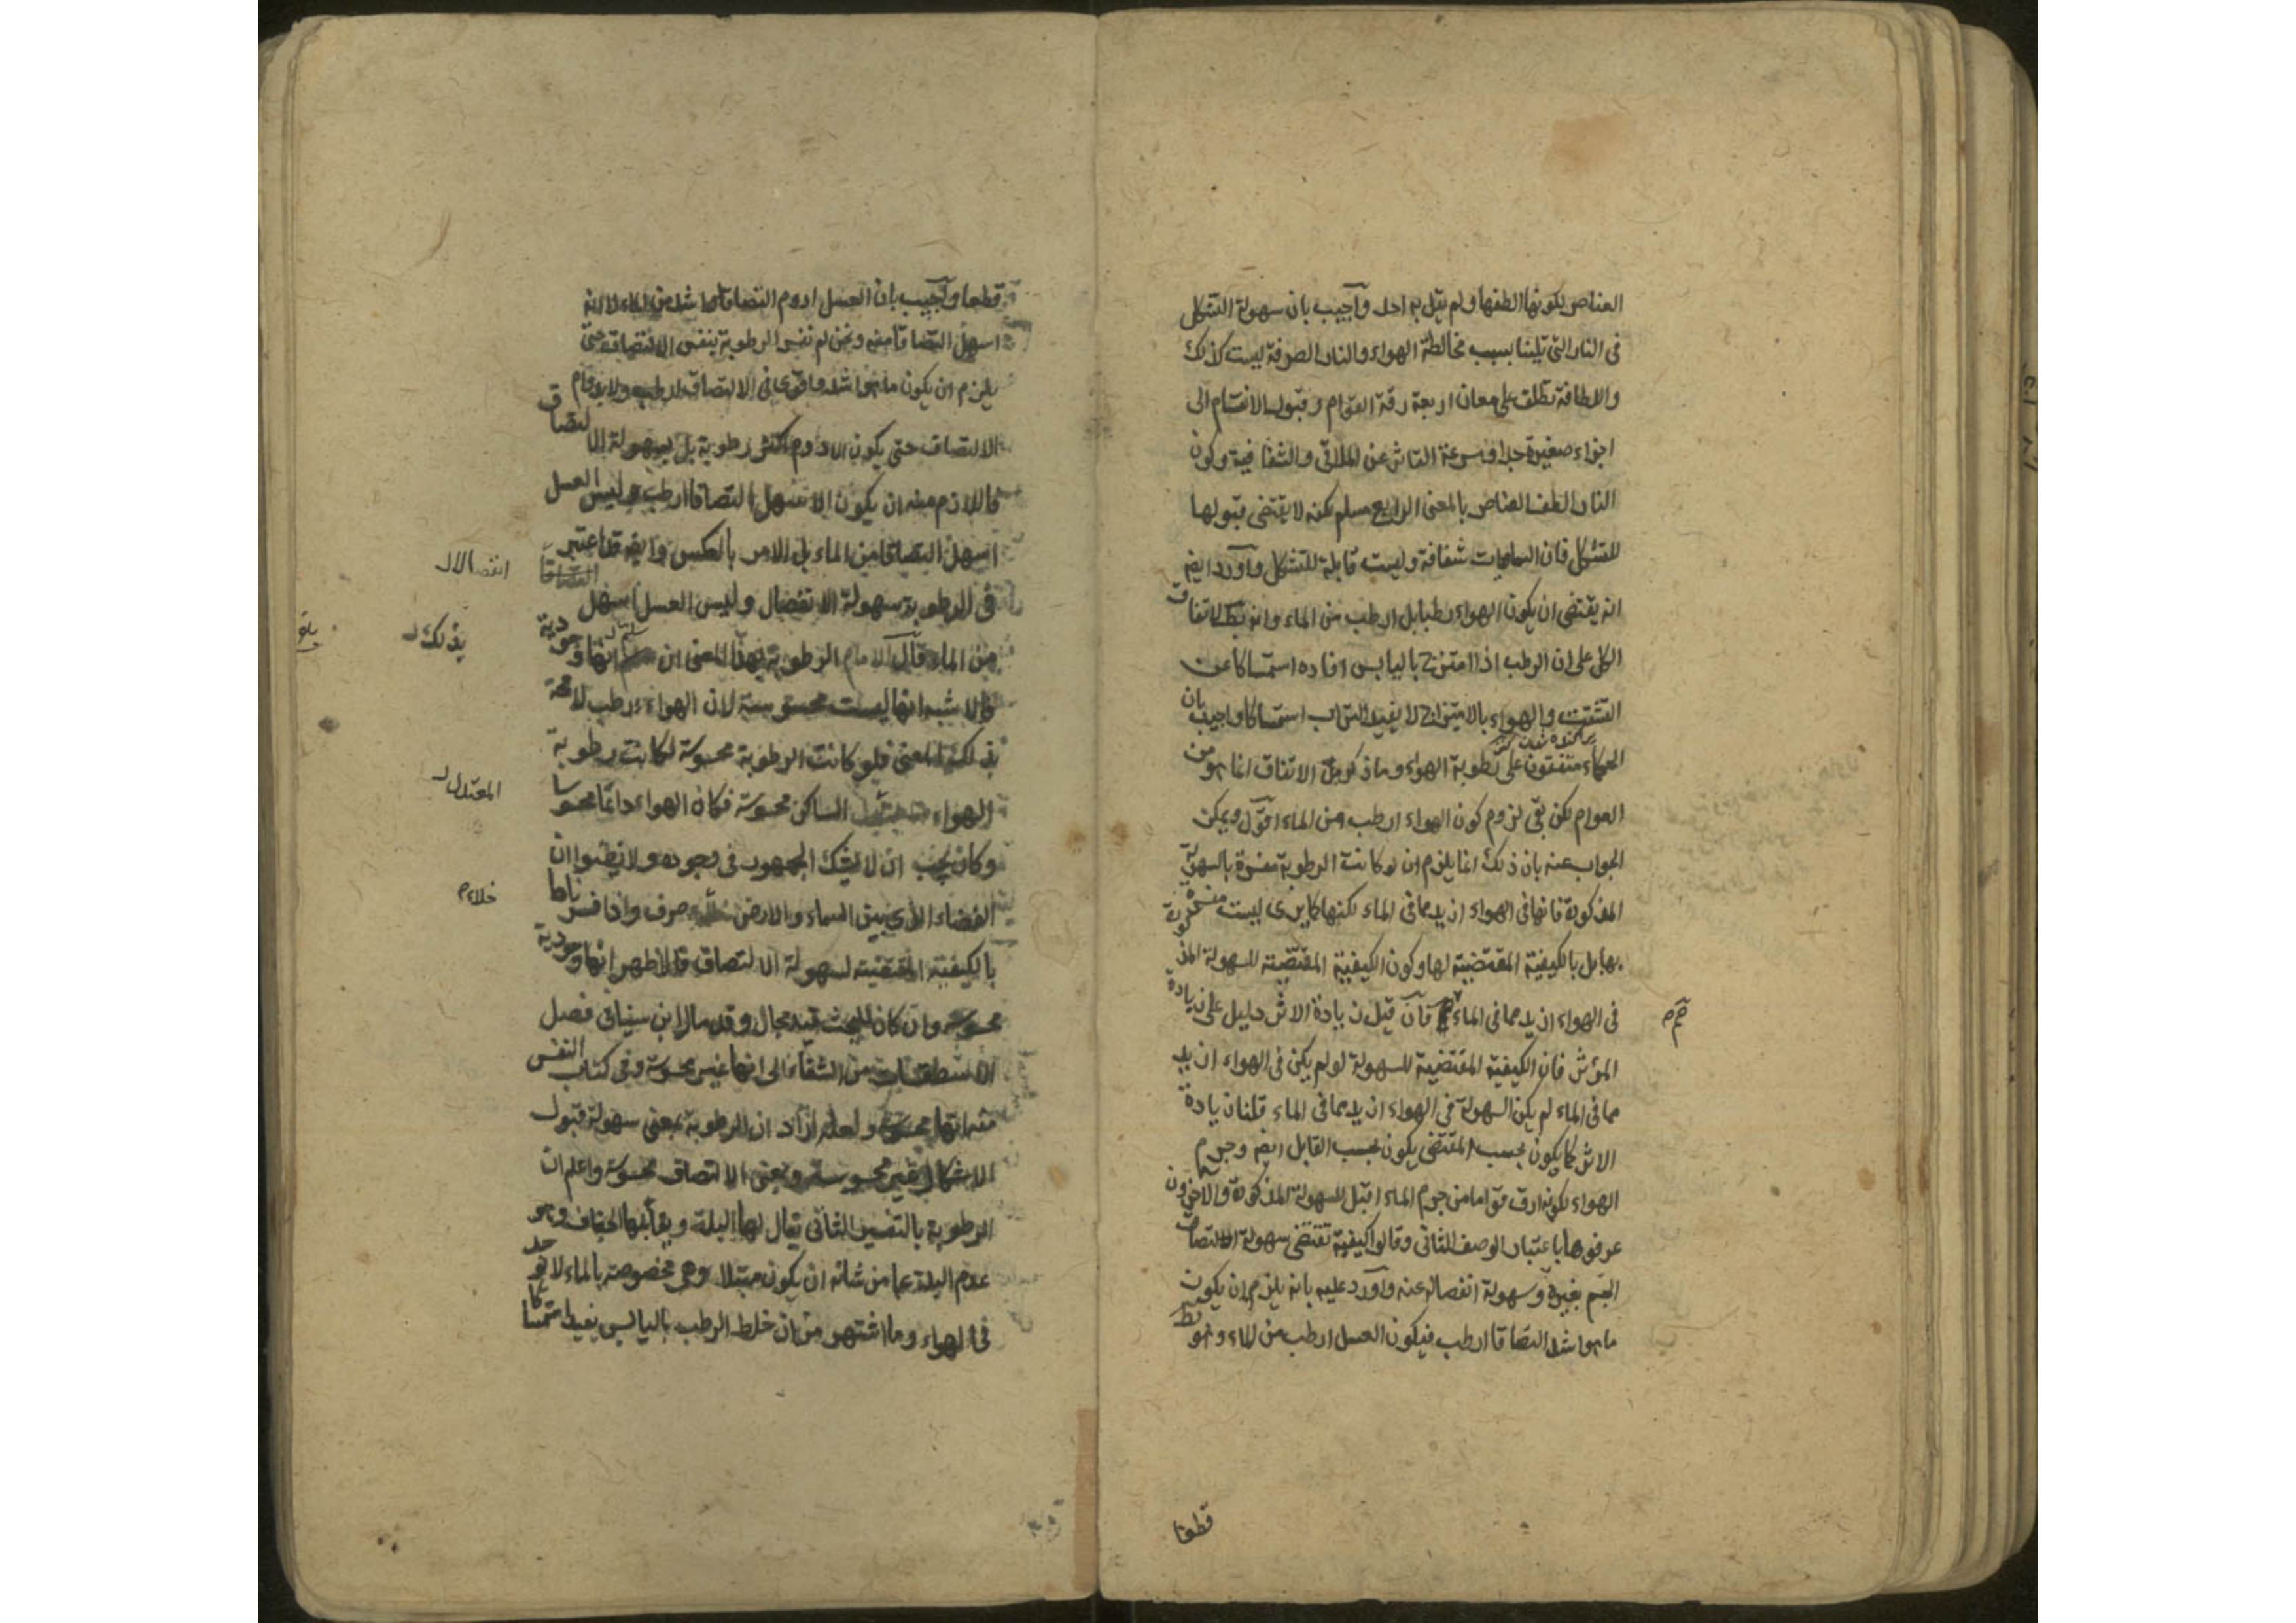 العناصر لكونها الطفها ولم يقل به احد وآجيب بان سهولة التشكل
فى النار التى تلينا بسبب مخالطة الهواء والنار الصرفة ليست كذلك
واللطافة تطلق على معان اربعة رقة القوام وقبول الانقسام الى
اجزاء صغيرة جدا وسرعة التاثر عن الملاقى والشفافية وكون
النار الطف العناصر بالمعنى الرابع مسلم لكنه لا يقتضى قبولها
للتشكل فان السماويات شفافة وليست قابلة للتشكل وآورد ايضا
انه يقتضى ان يكون الهواء رطبا بل ارطب من الماء وانه بط لاتفاق
الكل على ان الرطب اذا امتزج باليابس افاده استمساكا عن
التشتت والهواء بالامتزاج لا يفيد التراب استمساكا واجيب بان
الحكماء متفقون على رطوبة الهواء وما ذكر من الاتفاق انما هو من
العوام لكن بقى لزوم كون الهواء ارطب من الماء اقول ويمكن
الجواب عنه بان ذلك انما يلزم ان لو كانت الرطوبة مفسرة بالسهولة
المذكورة فانها فى الهواء ازيد مما فى الماء لكنها كما يرى ليست مفسرة
بها بل بالكيفية المقتضية لها وكون الكيفية المقتضية للسهولة المذكورة
فى الهواء ازيد مما فى الماء مم فآن قيل زيادة الاثر دليل على زيادة
المؤثر فان الكيفية المقتضية للسهولة لو لم يكن فى الهواء ازيد
مما فى الماء لم يكن السهولة فى الهواء ازيد مما فى الماء قلنا زيادة
الاثر كما يكون بحسب المقتضى يكون بحسب القابل ايضا وجرم
الهواء لكونه ارق قواما من جرم الماء اقبل للسهولة المذكورة والآخرون
عرفوها باعتبار الوصف الثانى وقالوا كيفية تقتضى سهولة التصاق
الجسم بغيره وسهولة انفصاله عنه وآورد عليه بانه يلزم ان يكون
ما هو اشد التصاقا ارطب فيكون العسل ارطب من الماء وهو بط
قطعا
قطعا وآجيب بان العسل ادوم التصاقا واشد من الماء لا انه
اسهل التصاقا منه ونحن لم نفسر الرطوبة بنفس الالتصاق حتى
يلزم ان يكون ما هو اشد واقوى فى الالتصاق ارطب ولا بدوام
الالتصاق حتى يكون الادوم اكثر رطوبة بل بسهولة الالتصاق
فاللازم منه ان يكون الاسهل التصاقا ارطب وليس العسل
اسهل التصاقا من الماء بل الامر بالعكس وايضا قد اعتبر
فى الرطوبة سهولة الانفصال وليس العسل اسهل
انفصالا
من الماء قآل الامام الرطوبة بهذا المعنى ان انها وجودية
بذلك
فالاشبه انها ليست محسوسة لان الهواء رطب لا محة
بذلك المعنى فلو كانت الرطوبة محسوسة لكانت رطوبة
الهواء الساكن محسوسة فكان الهواء دائما محسوسا
المعتدل
وكان يجب ان لا يشك الجمهور فى وجوده ولا يظنوا ان
الفضاء الذى بين السماء والارض صرف واذا فسرناها
خلاء
بالكيفية المقتضية لسهولة الالتصاق فالاظهر انها وجودية
محسوسة وان كان للبحث فيه مجال وقد مال ابن سينا فى فصل
الاسطقسات من الشفاء الى انها غير محسوسة وفى كتاب النفس
منه انها محسوسة ولعله اراد ان الرطوبة بمعنى سهولة قبول
الاشكال غير محسوسة وبمعنى الالتصاق محسوسة واعلم ان
الرطوبة بالتفسير الثانى يقال لها البلة ويقابلها الجفاف وهو
عدم البلة عما من شانه ان يكون مبتلا وهى مخصوصة بالماء لا توجد
فى الهواء وما اشتهر من ان خلط الرطب باليابس يفيد استمساكا